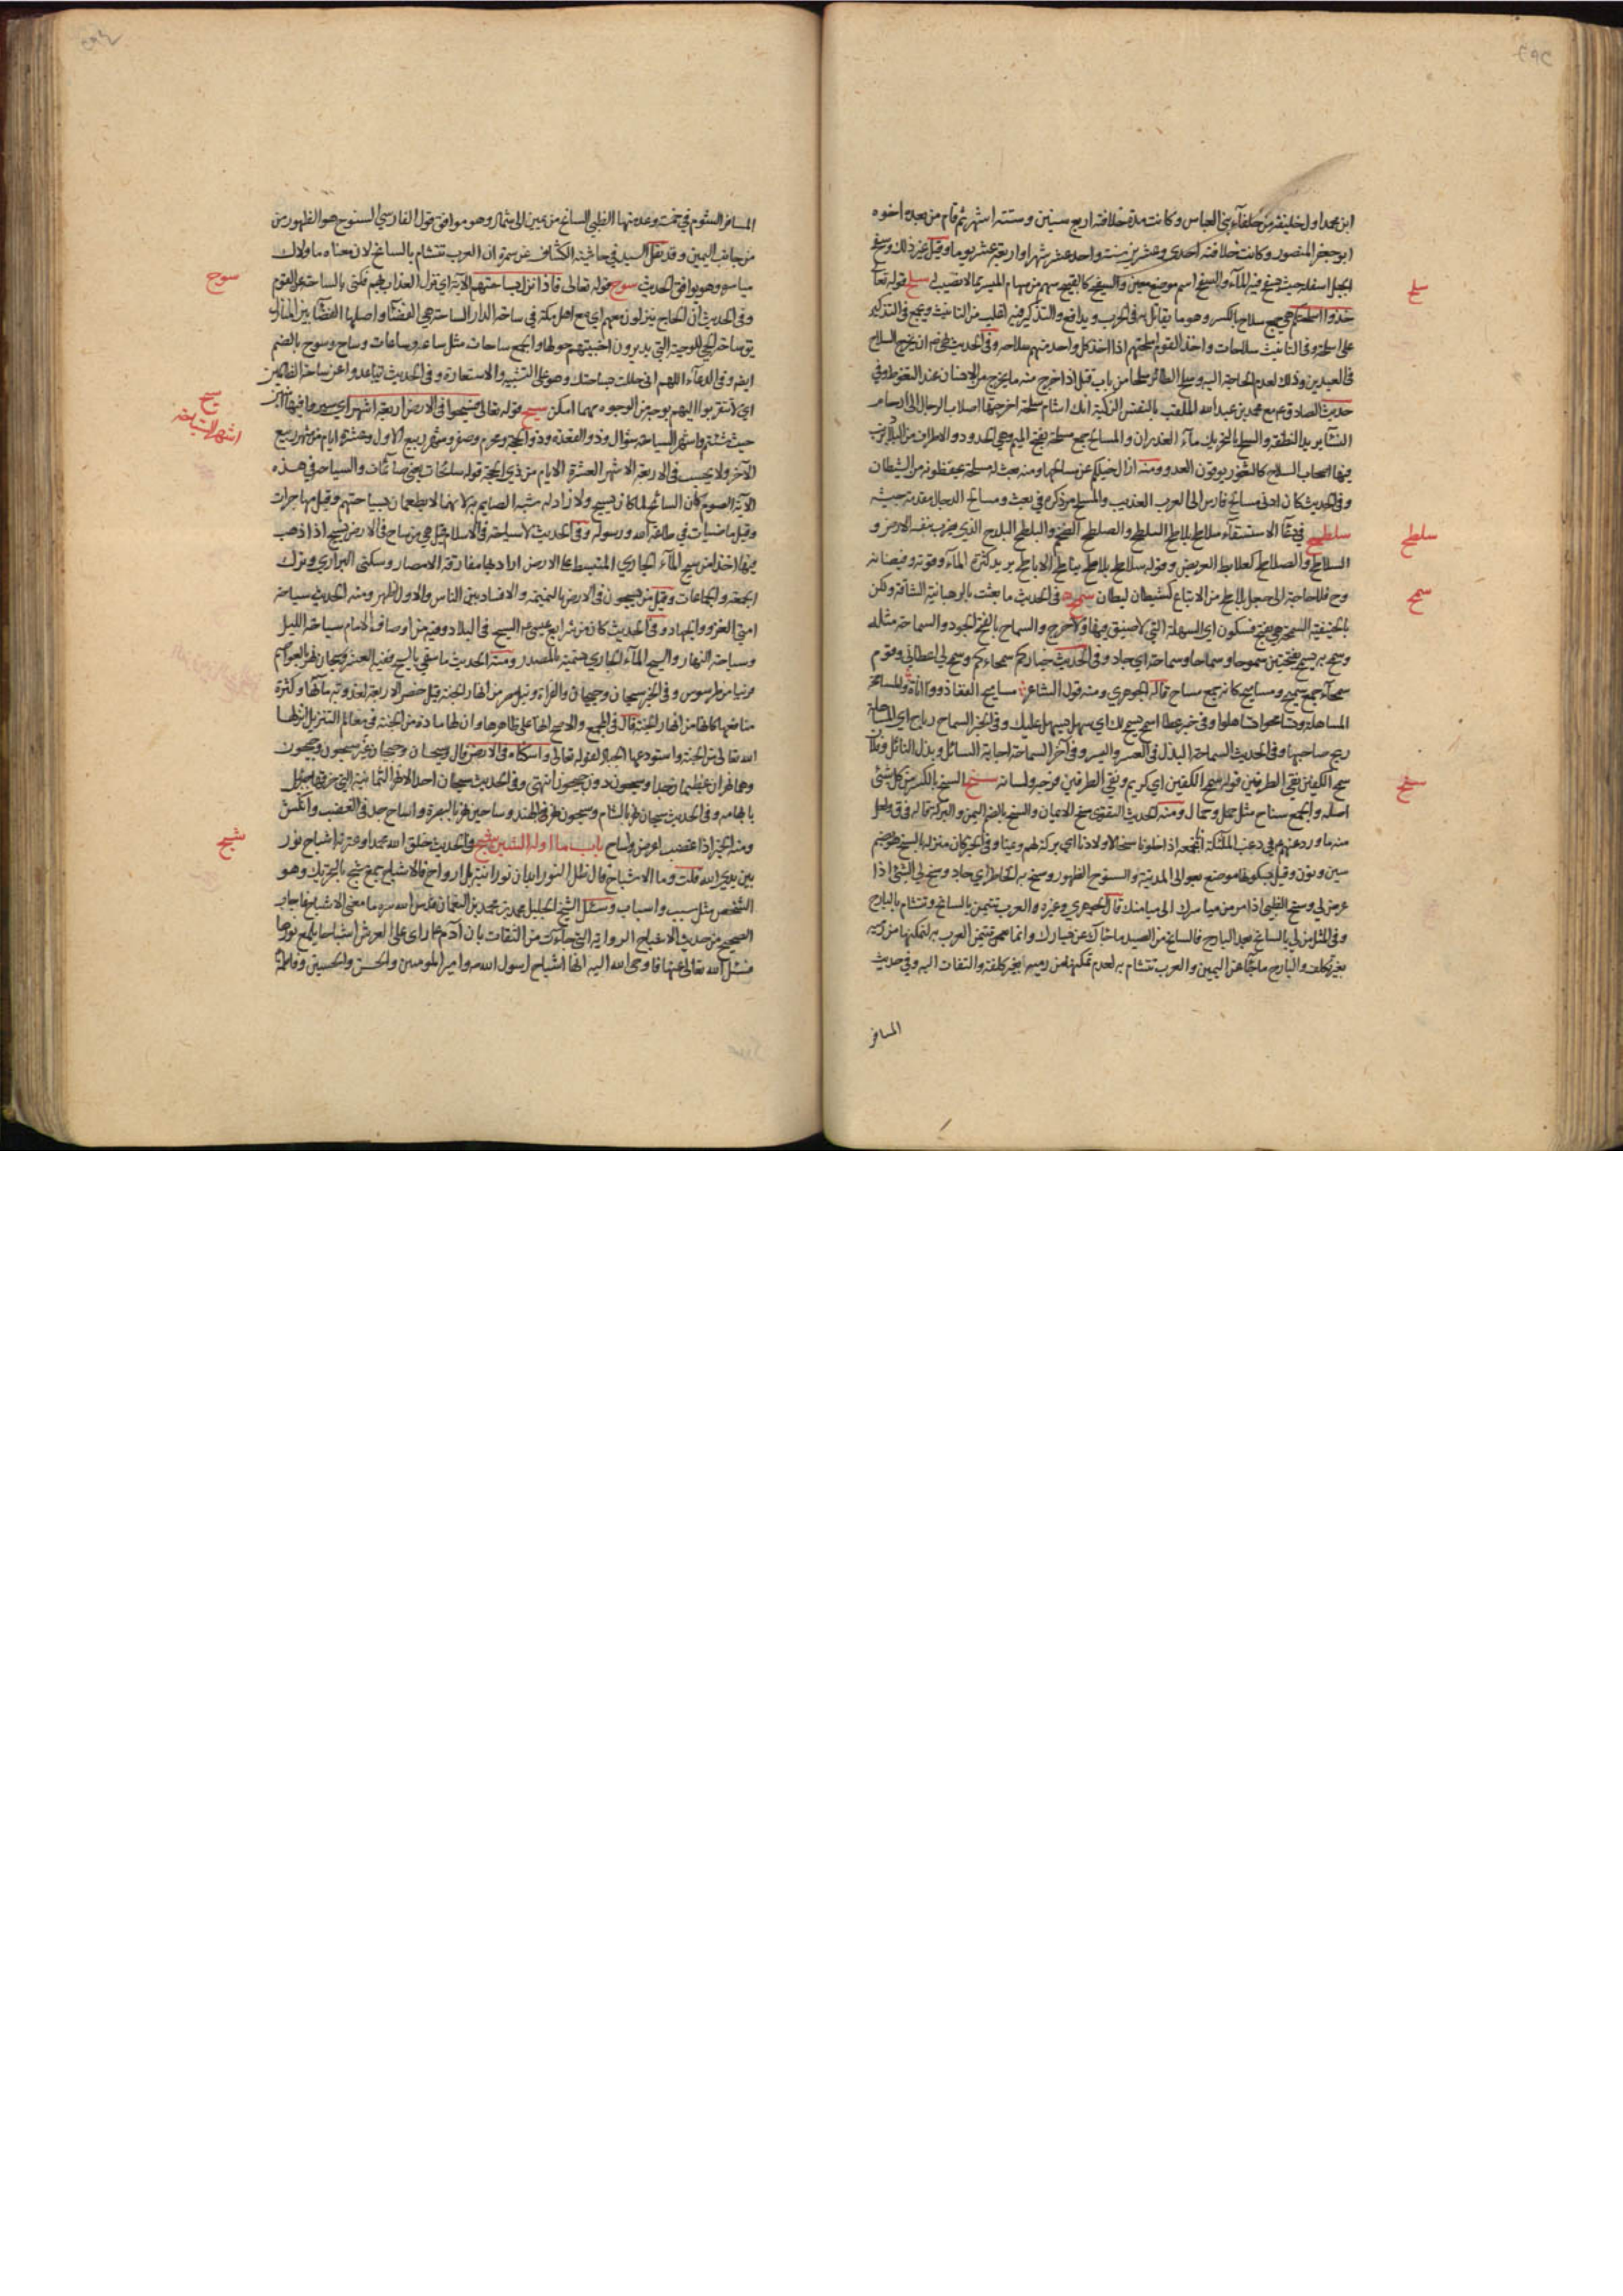 ابن محمد اول خليفة من خلفآء بني العباس وكانت مدة خلافته اربع سنين وستة اشهر ثم قام من بعده اخوه
ابو جعفر المنصور وكانت خلافته احدى وعشرين سنة واحد عشر شهرا واربعة عشر يوما وقيل غير ذلك وسفح
الجبل اسفله حيث يسفح فيه المآء والسفح اسم موضع معين والسفيح سهم من سهام الميسر مما لا نصيب لها سلح قوله تعالى
خذوا اسلحتكم هي جمع سلاح بالكسر وهو ما يقاتل به في الحرب ويدافع والتذكير فيه اغلب من التانيث ويجمع في التذكير
على اسلحة وفي التانيث سلاحات واخذ القوم اسلحتهم اذا اخذ كل واحد منهم سلاحه وفي الحديث
في العيدين وذلك لعدم الحاجة اليه وسلح الطائر سلحا من باب قتل اذا خرج منه ما يخرج من الانسان عند التغوط وفي
حديث الصادق ع مع محمد بن عبد الله الملقب بالنفس الزكية انك اشام سلحة اخرجتها اصلاب الرجال الى ارحام
النسآء يريد النطفة والسلح بالتحريك مآء الغدران والمسالح جمع مسلحة بفتح الميم وهي الحدود والاطراف من البلاد
فيها اصحاب السلاح كالثغور يرقبون العدو ومنه ازال خيلكم عن مسالحها ومنه بعث له مسلحة يحفظونه من الشيطان
وفي الحديث كان ادنى مسالح فارس الى العرب العذيب
سلطح في دعآ الاستسقآء سلاطح بلاطح السلطح والصلطح الضخم والبلطح
السلاطح والصلاطح كعلابط العريض وقوله سلاطح بلاطح يناطح الاباطح يريد كثرة المآء وقوته وفيضانه
وح فلا حاجة الى جعل بلاطح من الاتباع كشيطان ليطان سمح في الحديث ما بعثت بالرهبانية الشاقة ولكن
بالحنيفية السمحة هي بفتح فسكون اي السهلة التي لا ضيق فيها ولا حرج والسماح بالفتح الجود والسماحة مثله
وسمح به يسمح بفتحتين سموحا وسماحا وسماحة اي جاد وفي الحديث خياركم سمحاءكم وسمح لي اعطاني وقوم
سمحآء جمع سميح ومساميح كانه جمع مسماح قاله الجوهري ومنه قول الشاعر مساميح الفعال ذووا اناة والمسامحة
المساهلة وتسامحوا تساهلوا وفي خبر عطا اسمح يسمح لك اي سهل يسهل عليك وفي الخبر السماح رباح اي المساهلة
ربح صاحبها وفي الحديث السماحة البذل في العسر واليسر وفي آخر السماحة اجابة السائل وبذل النائل وفلان
سمح الكفين نقي الطرفين قوله سمح الكفين اي كريم ونقي الطرفين فرجه ولسانه سنح السنخ بالكسر من كل شئ
اصله والجمع سناخ مثل حمل واحمال ومنه الحديث التقوى سنخ الايمان والسنح بالضم اليمن والبركة
سين ونون وقيل بسكونها موضع بعوالي المدينة والسنوح الظهور وسنح به الخاطر اي جاد وسنح لي الشئ اذا
عرض لي وسنح الظبي اذا مر من مياسرك الى ميامنك قال الجوهري وغيره والعرب تتيمن بالسانح وتتشام بالبارح
وفي المثل من لي بالسانح بعد البارح فالسانح من الصيد ما جآءك عن يسارك
بغير تكلف والبارح ما جآء عن اليمين والعرب تتشام به لعدم تمكنها من رميه بغير كلفة والتفات اليه وفي حديث
المسافر
سلح
سلطح
سمح
سنح
المسافر الشوم في خمسة وعد منها الظبي السانح من يمين الى شمال وهو موافق قول الفارسي السنوح هو الظهور من
من جانب اليمين وقد نقل السيد في حاشية الكشاف عن سمرة ان العرب تتشام بالسانح لان معناه ما ولاك
مياسره وهو يوافق الحديث سوح قوله تعالى فاذا نزل بساحتهم الآية اي نزل العذاب بهم فكنى بالساحة عن القوم
وفي الحديث ان الحاج ينزلون معهم اي مع اهل مكة في ساحة الدار الساحة هي الفضآء واصلها الفضآء بين المنازل
يق ساحة الحي للوحبة التي يديرون اخبيتهم حولها والجمع ساحات مثل ساعة وساعات وساح وسوح بالضم
ايضا وفي الدعآء اللهم اني حللت بساحتك وهو على التشبيه والاستعارة وفي الحديث تباعدوا عن ساحة الظالمين
اي لا تقربوا اليهم بوجه من الوجوه مهما امكن سيح قوله تعالى فسيحوا في الارض اربعة اشهر اي سيروا فيها آمنين
حيث شئتم واشهر السياحة شوال وذو القعدة وذو الحجة ومحرم وصفر وشهر ربيع الاول وعشرة ايام من شهر ربيع
الآخر ولا يحسب في الاربعة الاشهر العشرة الايام من ذي الحجة قوله سائحات يعني صائمات والسياحة في هذه
الآية الصوم كان السائح لما كان يسيح ولا زاد له شبه الصايم به لانهما لا يطعمان بسياحتهم وقيل مهاجرات
وقيل ماضيات في طاعة الله ورسوله وفي الحديث لا سياحة في الاسلام قيل هي من ساح في الارض يسيح اذا ذهب
فيها اخذا من سيح المآء الجاري المنبسط على الارض اراد بها مفارقة الامصار وسكنى البراري وترك
الجمعة والجماعات وقيل من يسيحون في الارض بالنميمة والافساد بين الناس والاول اظهر ومنه الحديث سياحة
امتي الغزو والجهاد وفي الحديث كان من شرايع عيسى ع السيح في البلاد وفيه من اوصاف الامام سياحة الليل
وسياحة النهار والسيح المآء الجاري تسمية بالمصدر ومنه الحديث ما سقي بالسيح ففيه العشر وسيحان نهر بالعواصم
قريبا من طرسوس وفي الخبر سيحان وجيحان والفرات ونيل مصر من انهار الجنة قيل خص الاربعة لعذوبة مآئها وكثرة
منافعها كانها من انهار الجنة قال في المجمع والاصح انها على ظاهرها وان لها مادة من الجنة في معالم التنزيل انزلها
الله تعالى من الجنة واستودعها الجبال لقوله تعالى واسكناه في الارض قال وسيحان وجيحان غير سيحون وجيحون
وهما نهران عظيمان جدا وسيحون دون جيحون انتهى وفي الحديث سيحان احد الانهر الثمانية التي خرقها جبرئيل
بابهامه وفي الحديث سيحان نهر بالشام وسيحون نهر في الهند وساحين نهر بالبصرة
ومنه الخبر اذا غضب اعرض واشاح باب ما اوله الشين شبح وفي الحديث خلق الله محمدا وعترته اشباح نور
بين يدي الله قلت وما الاشباح قال ظل النور ابدان نورانية بلا ارواح فالاشباح جمع شبح بالتحريك وهو
الشخص مثل سبب واسباب وسئل الشيخ الجليل محمد بن محمد بن النعمان قدس الله سره ما معنى الاشباح فاجاب
الصحيح من حديث الاشباح الرواية التي جآءت من الثقات بان آدم ع راى على العرش اشباحا يلمع نورها
فسئل الله تعالى عنها فاوحى الله اليه انها اشباح رسول الله ص وامير المومنين والحسن والحسين وفاطمة
سوح
سيح
اشهر السياحة
شبح